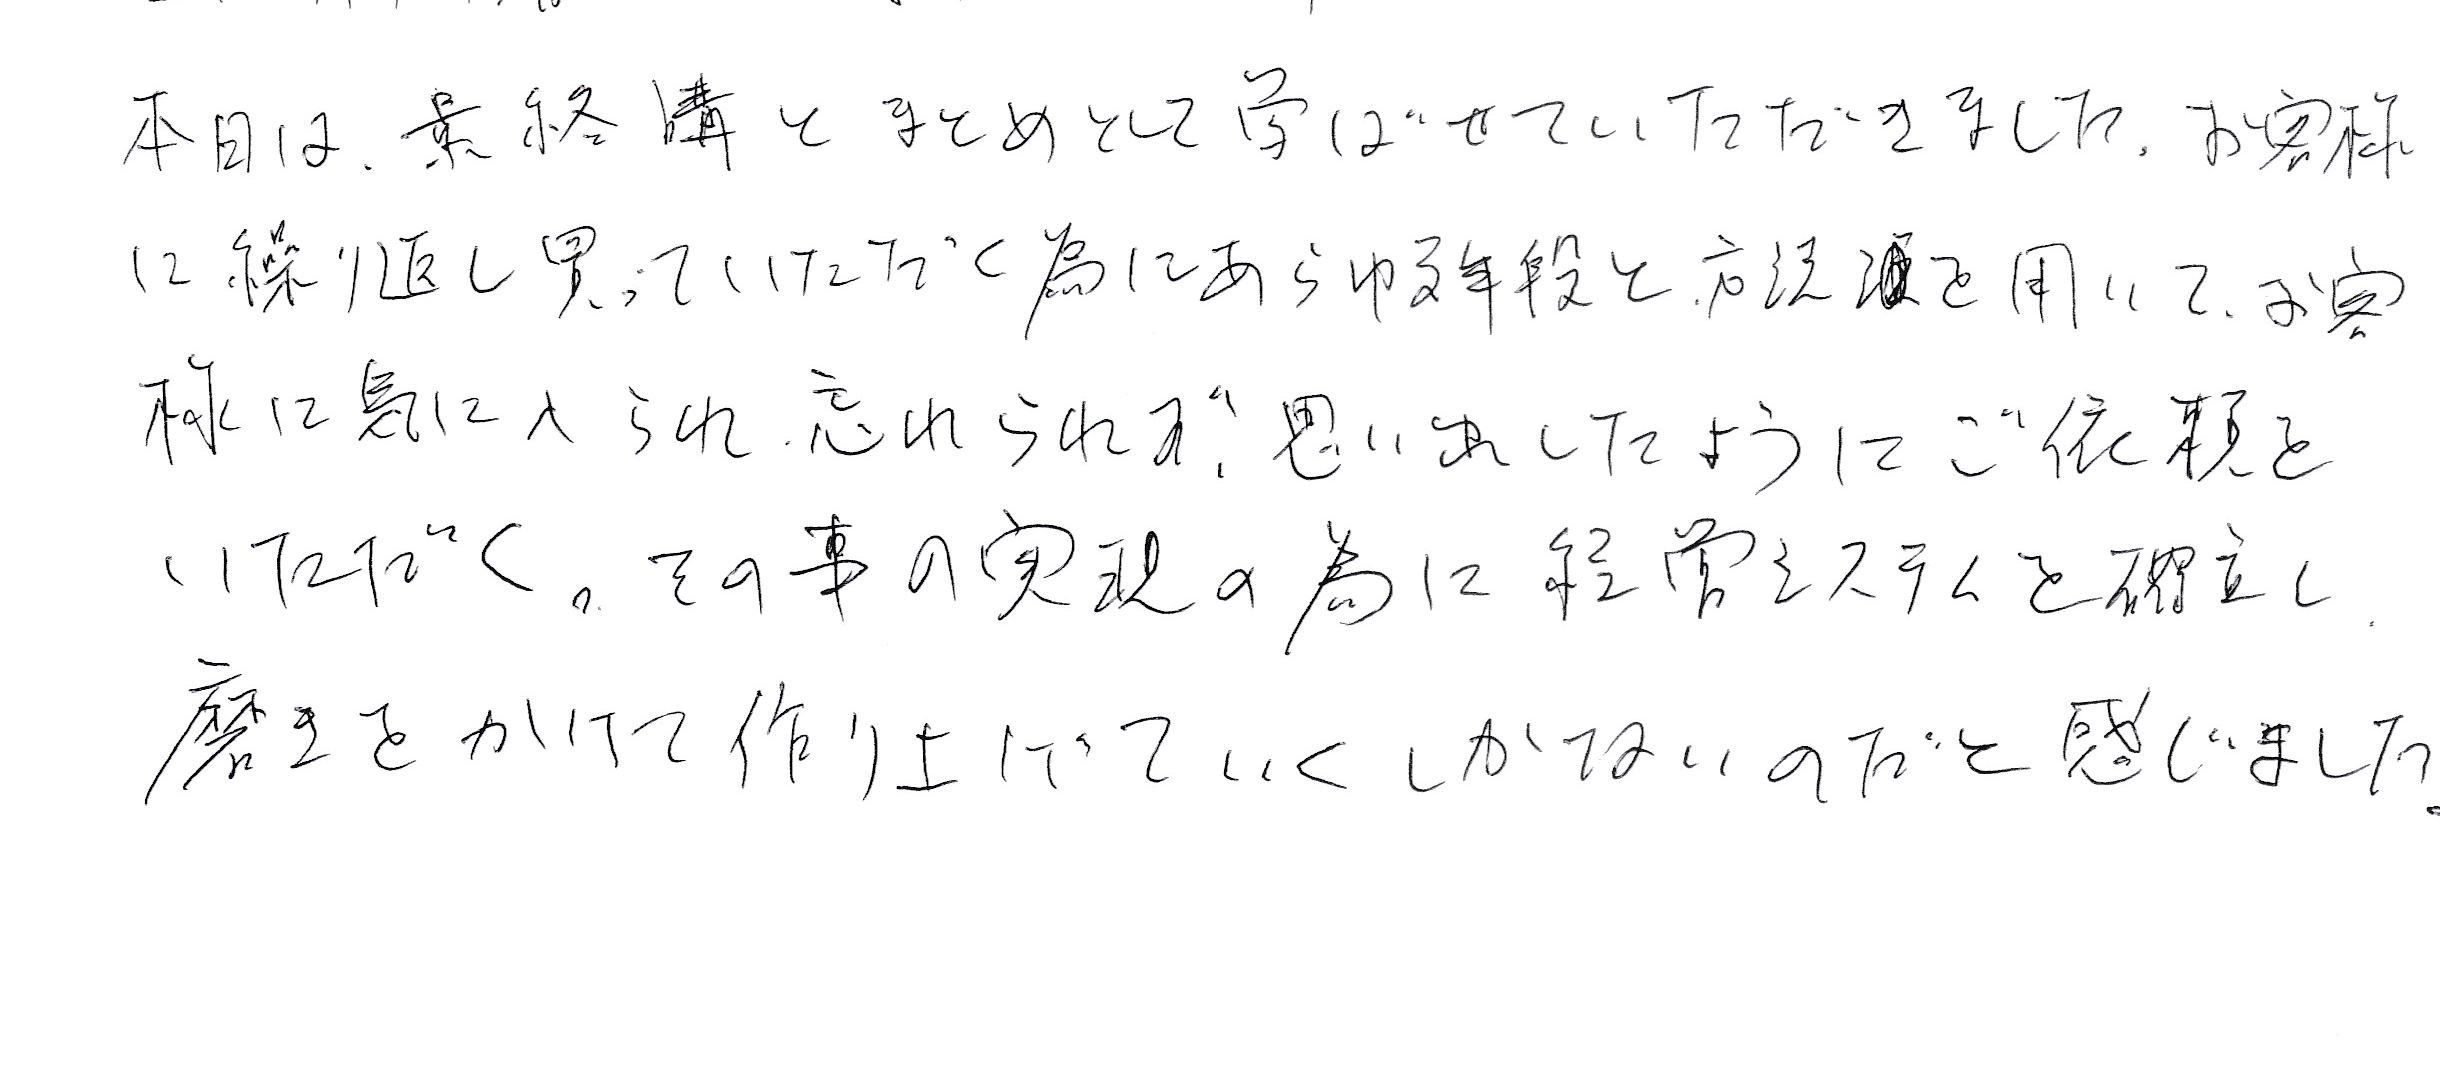 本日は、最終講とまとめとして学ばせていただきました。お客様
に繰り返し買っていただく為にあらゆる手段と方法を用いて、お客
様に気に入られ、忘れられず、思い出したようにご依頼を
いただく。その事の実現の為に経営システムを確立し、
磨きをかけて作り上げていくしかないのだと感じました。